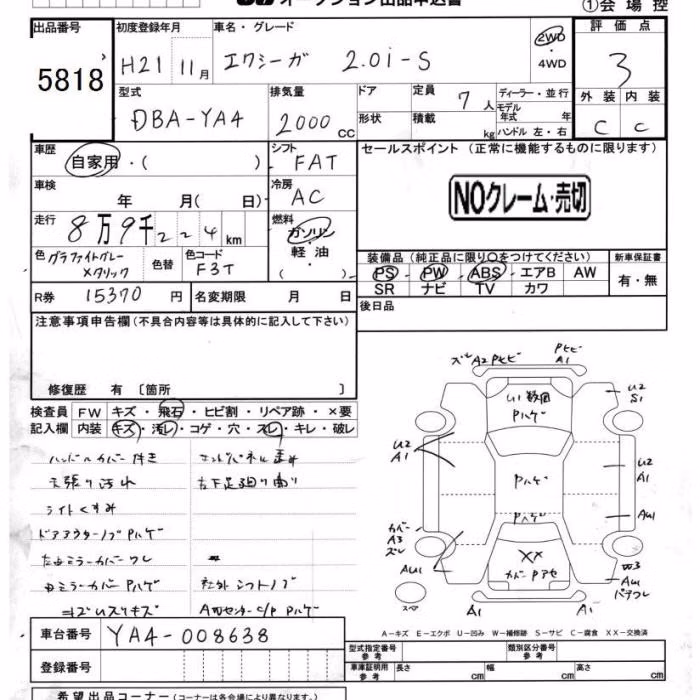 オークション出品申込書
①会場控
出品番号
5818
初度登録年月
H21 11月
車名・グレード
エクシーガ 2.0i-S
2WD
・
4WD
評価点
3
外装 内装
C C
型式
DBA-YA4
排気量
2000 CC
ドア
形状
定員 7人
積載 kg
ディーラー・並行
モデル
年式 年
ハンドル 左・右
車歴
自家用・( )
シフト
FAT
セールスポイント (正常に機能するものに限ります)
NOクレーム・売切
車検
年 月( 日)
冷房
AC
走行
8万9千224km
燃料
ガソリン
・
軽油
( )
色
グラファイトグレーメタリック
色替
色コード
F3T
装備品(純正品に限り○をつけてください)
PS PW ABS エアB AW
SR ナビ TV カワ
新車保証書
有・無
R券 15370円
名変期限 月 日
後日品
注意事項申告欄(不具合内容等は具体的に記入して下さい)
修復歴 有〔箇所 〕
検査員 FW キズ・飛石・ヒビ割・リペア跡・×要
記入欄 内装 キズ・汚レ・コゲ・穴・スレ・キレ・破レ
ハンドルカバー付き
天張り汚れ
ライトくすみ
ドアアウターノブPハゲ
ミラーカバーPハゲ
左下足廻り
社外シフトノブ
A1
U1 数個
Pハゲ
U2
S1
U2
A1
U2
A1
Pハゲ
Pハゲ
AU1
カバー
A3
ズレ
AU1
XX
AU1
スペア
A1
A1
A-キズ E-エクボ U-凹み W-補修跡 S-サビ C-腐食 XX-交換済
車台番号 YA4-008638
登録番号
型式指定番号
参考
類別区分番号
参考
車庫証明用
参考
長さ cm 幅 cm 高さ cm
希望出品コーナー(コーナーは各会場により異なります。)